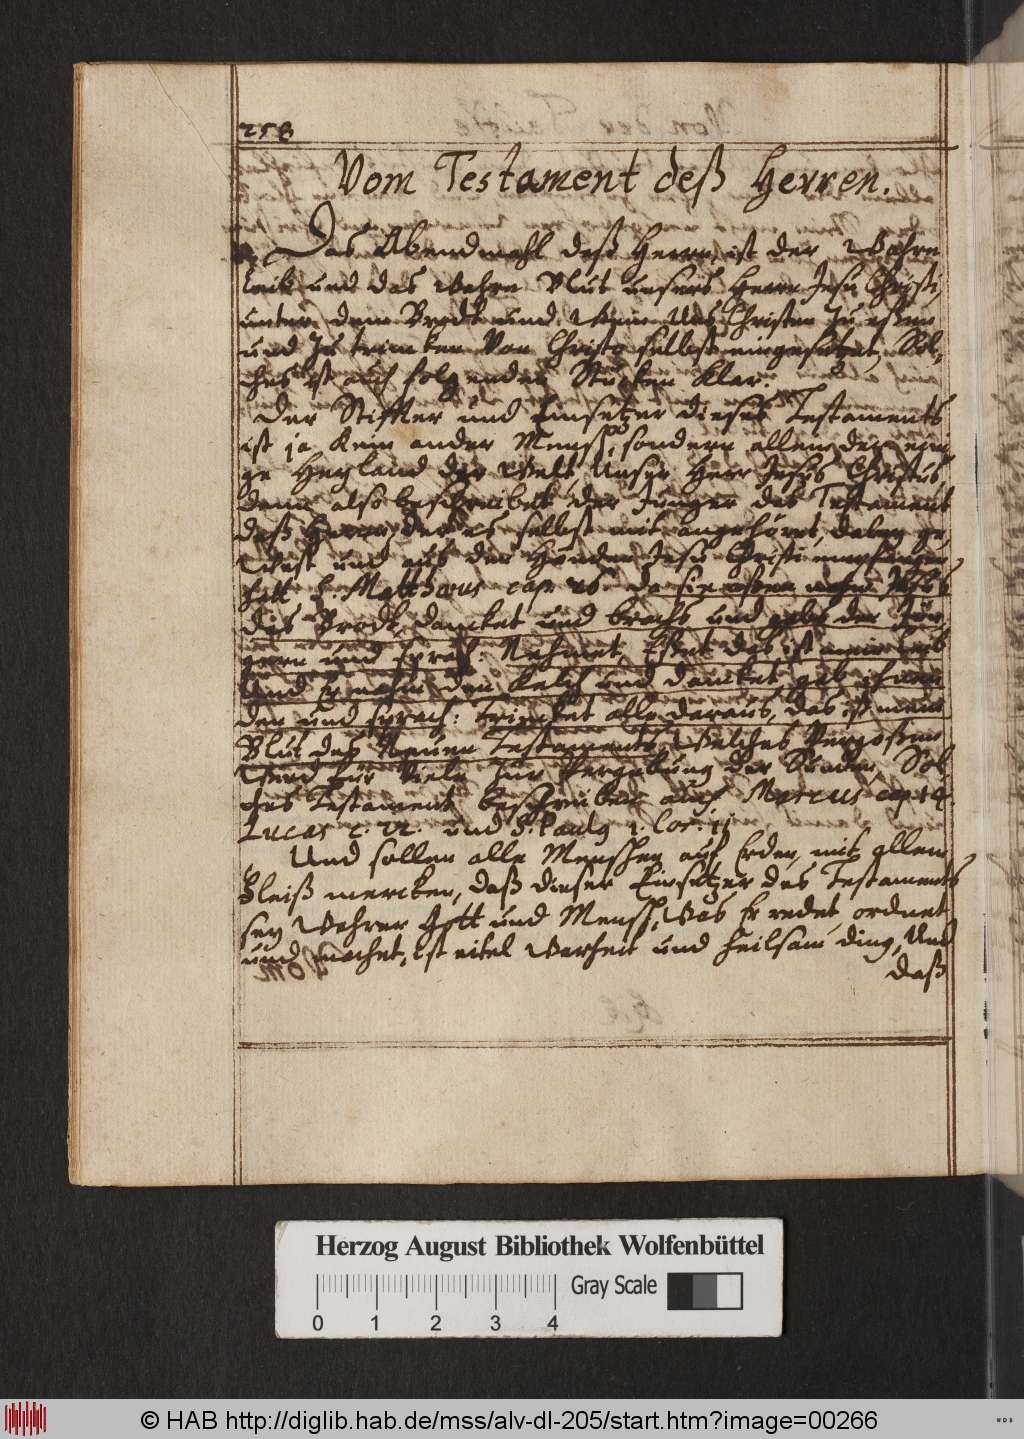 258
Vom Testament deß Herren.
Das Abendmahl deß Herrn, ist der wahre
leib und das wahre Blut unsers Herrn Jesu Christi,
unter dem Brodt und Wein uns Christen zu eßen
und zu trincken von Christo selbst eingesetzet, Sol,
ches ist auß folgenden Stücken klar.
Der Stiffter und Einsetzer dieses Testaments
ist ja kein ander Mensch, sondern allein der eini
ge Heyland der Welt, Unser Herr Jesus Christus,
denn also beschreibet der Junger das Testament
deß Herrn, der es selbst mit angehöret, dabey ge,
west und aus den Händen Jesu Christi empfangen
hatt S. Matthaeus cap. 26. da sie aßen nahm Jesus
das Brodt, dancket und brachs und gabs den Jün
gern und sprach: Nehmet, Eßet das ist mein leib
Und Er nahm den Kelch und dancket gab ihnen
den und sprach: trincket alle daraus, das ist mein
Blut des Neuen Testaments, welches vergoßen
wird für viele zur Vergebung der Sünden, Sol
ches Testament beschreiben auch Marcus cap. 14.
Lucas c. 22. und S. Paulus 1. Cor. 11
Und sollen alle Menschen auf Erden, mit allem
Fleiß mercken, daß dieser Einsetzer des Testaments
sey wahrer Gott und Mensch, was Er redet, ordnet
und machet, ist eitel warheit und heilsam ding, Und
daß
Herzog August Bibliothek Wolfenbüttel
Gray Scale
0 1 2 3 4
© HAB http://diglib.hab.de/mss/alv-dl-205/start.htm?image=00266